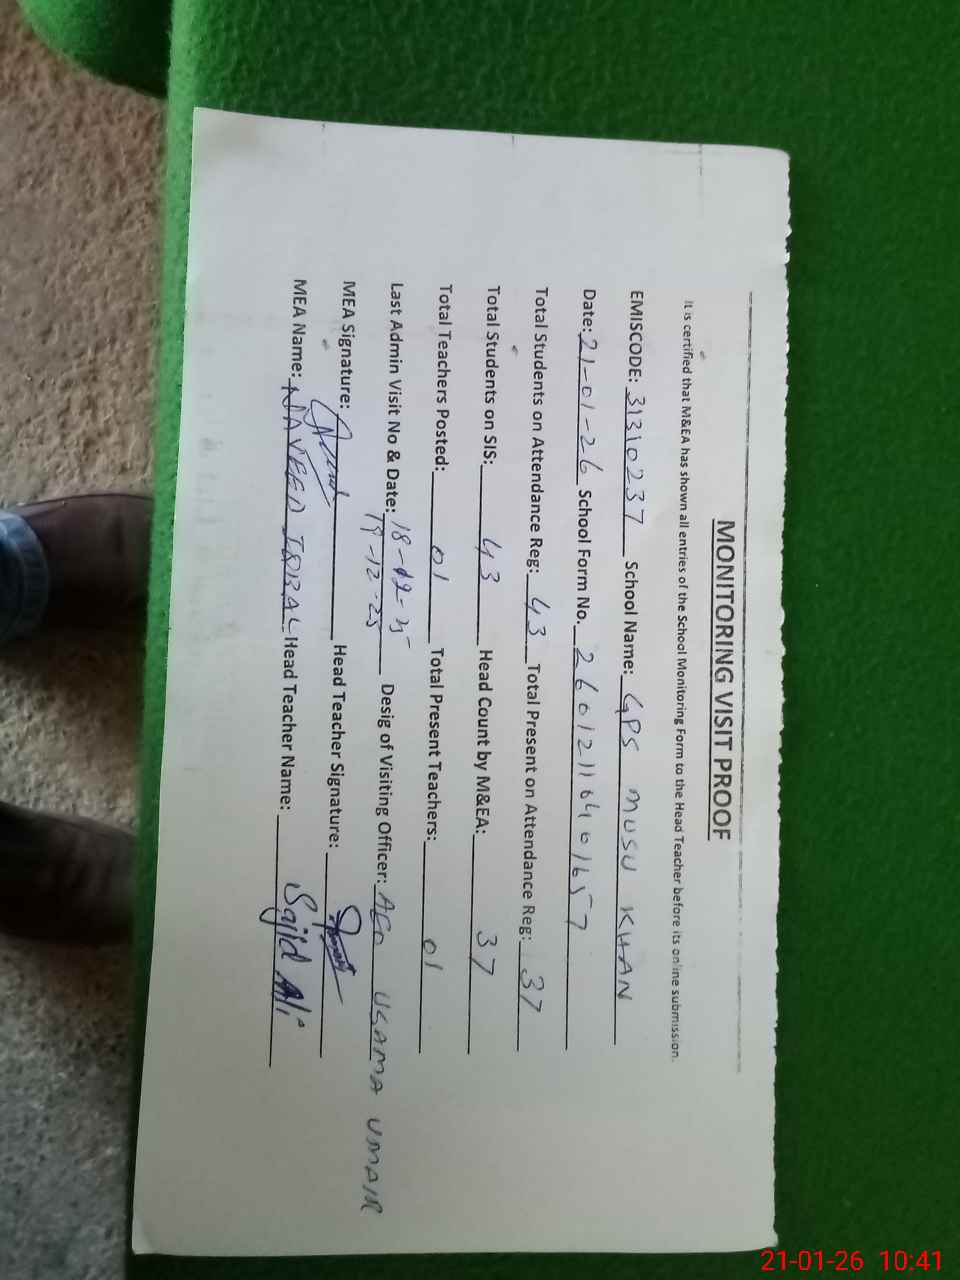 MONITORING VISIT PROOF
It is certified that M&EA has shown all entries of the School Monitoring Form to the Head Teacher before its online submission.
EMISCODE: 31310237 School Name: GPS MUSU KHAN
Date: 21-01-26 School Form No. 2601211040 1657
Total Students on Attendance Reg: 43 Total Present on Attendance Reg: 37
Total Students on SIS: 43 Head Count by M&EA: 37
Total Teachers Posted: 01 Total Present Teachers: 01
Last Admin Visit No & Date: 18-12-25 Desig of Visiting Officer: AEO USAMA UMAIR
19-12-25
MEA Signature: Head Teacher Signature:
MEA Name: NAVEED IQBAL Head Teacher Name: Sajid Ali
21-01-26 10:41